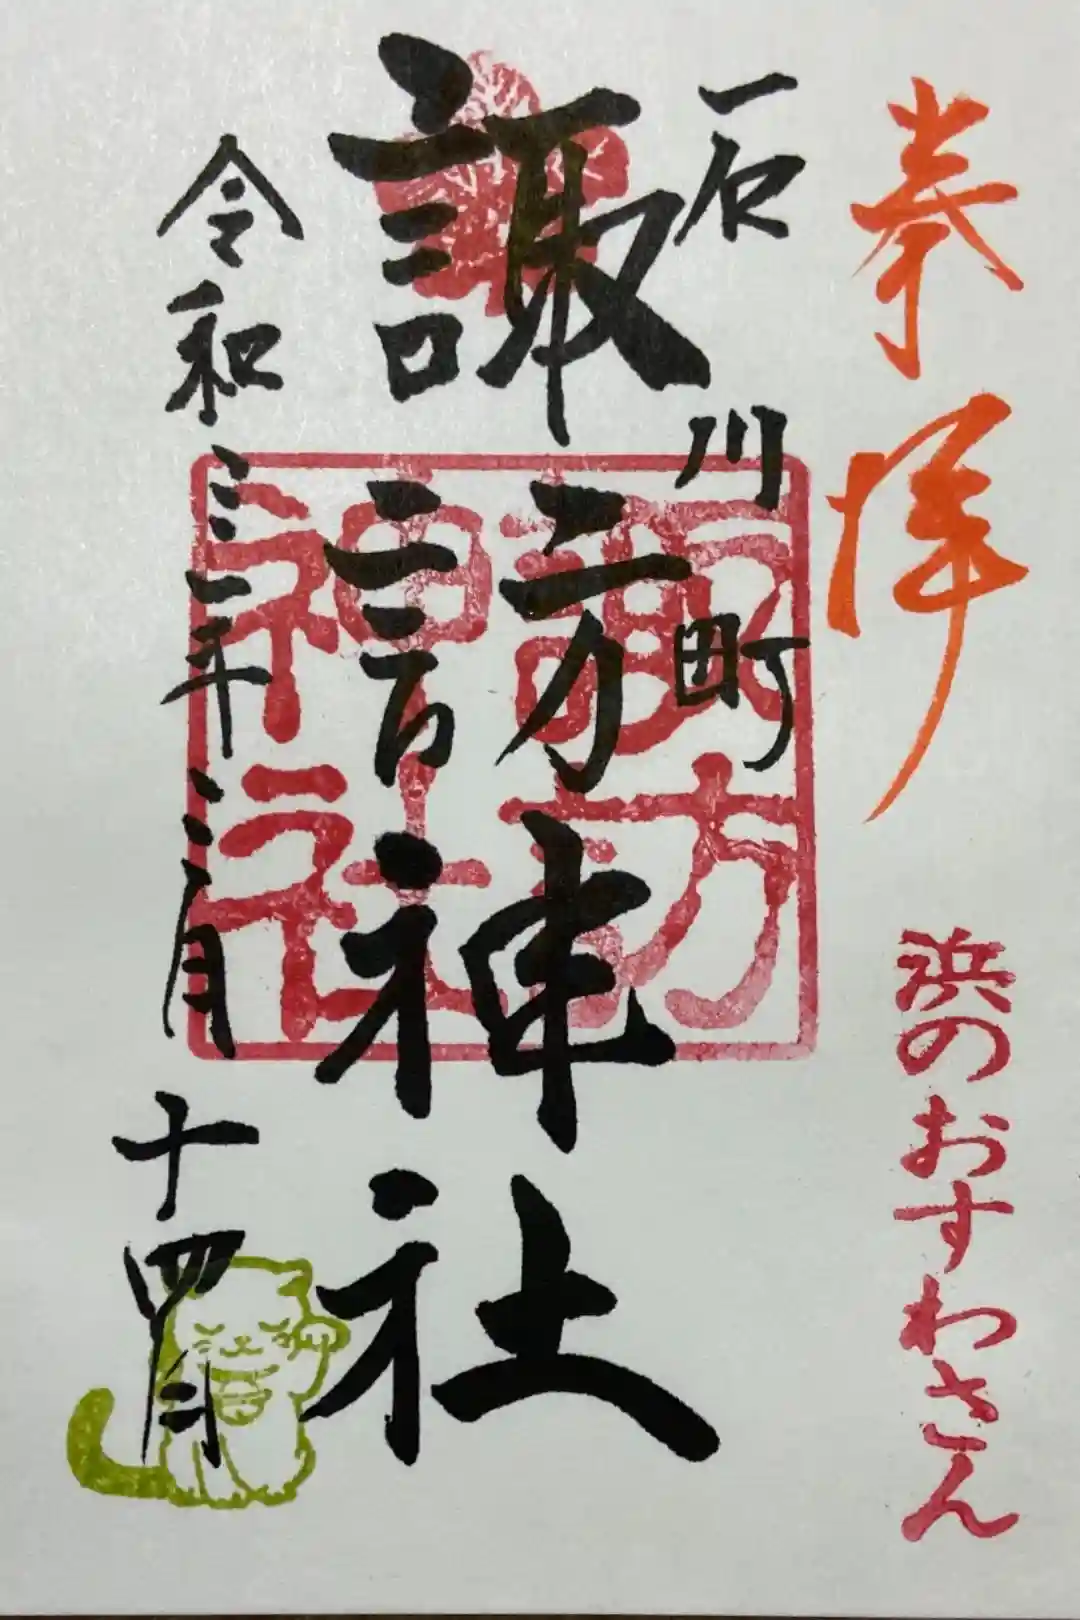 奉拝
浜のおすわさん
石川町
諏訪神社
諏訪
神社
令和三年二月十四日